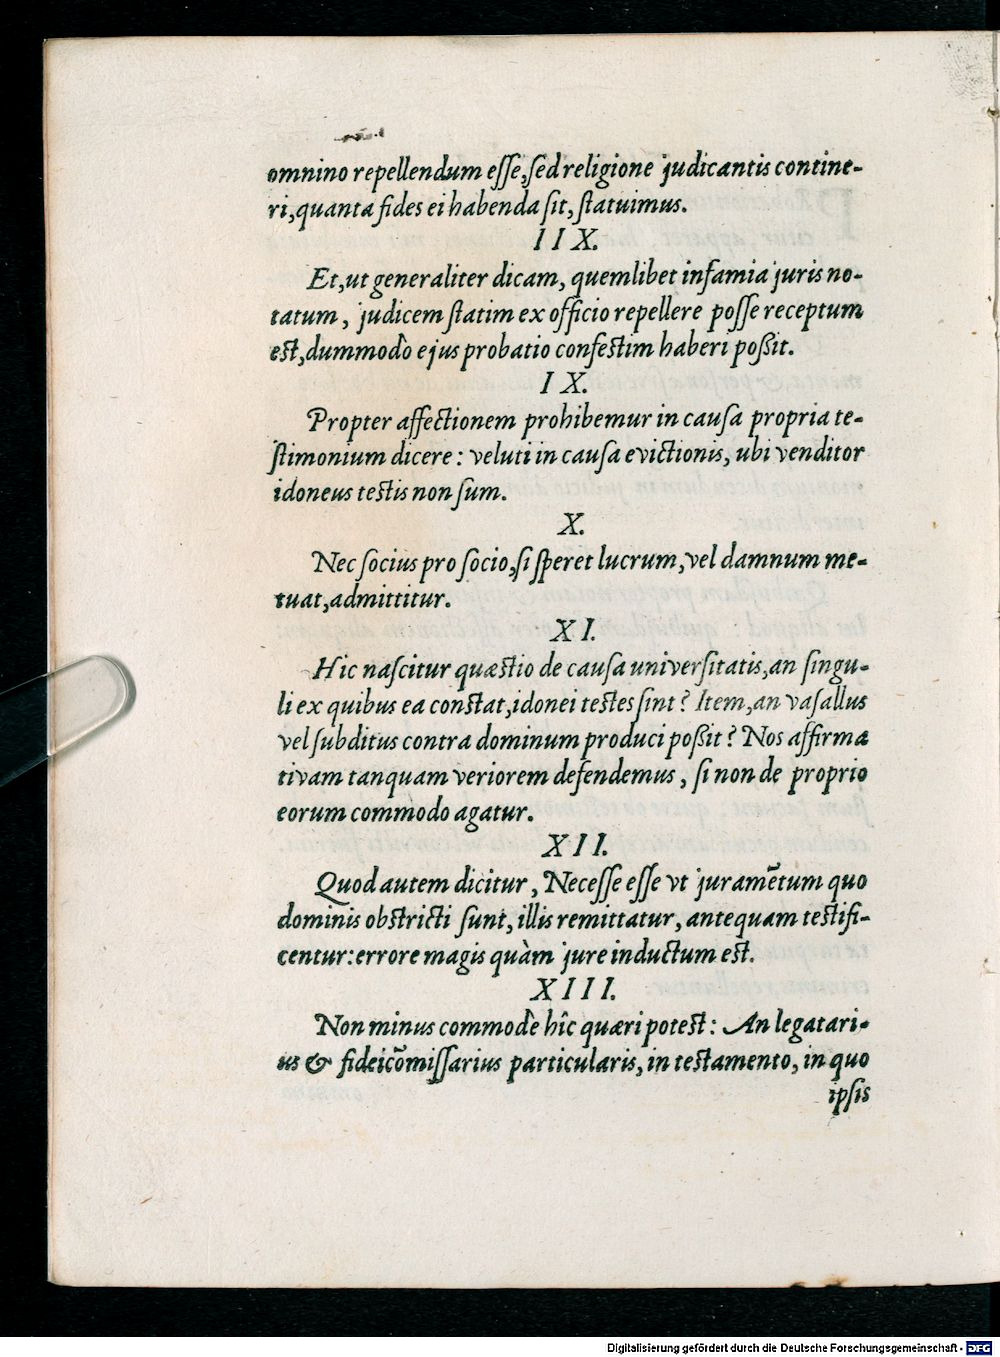 omnino repellendum esse, sed religione judicantis contine-
ri, quanta fides ei habenda sit, statuimus.
IIX.
Et, ut generaliter dicam, quemlibet infamia juris no-
tatum, judicem statim ex officio repellere posse receptum
est, dummodò ejus probatio confestim haberi poßit.
IX.
Propter affectionem prohibemur in causa propria te-
stimonium dicere: veluti in causa evictionis, ubi venditor
idoneus testis non sum.
X.
Nec socius pro socio, si speret lucrum, vel damnum me-
tuat, admittitur.
XI.
Hic nascitur quæstio de causa universitatis, an singu-
li ex quibus ea constat, idonei testes sint? Item, an vasallus
vel subditus contra dominum produci poßit? Nos affirma
tivam tanquam veriorem defendemus, si non de proprio
eorum commodo agatur.
XII.
Quod autem dicitur, Necesse esse vt juramẽtum quo
dominis obstricti sunt, illis remittatur, antequam testifi-
centur: errore magis quàm jure inductum est.
XIII.
Non minus commodè hîc quæri potest: An legatari-
us & fideicõmissarius particularis, in testamento, in quo
ipsis
Digitalisierung gefördert durch die Deutsche Forschungsgemeinschaft - DFG